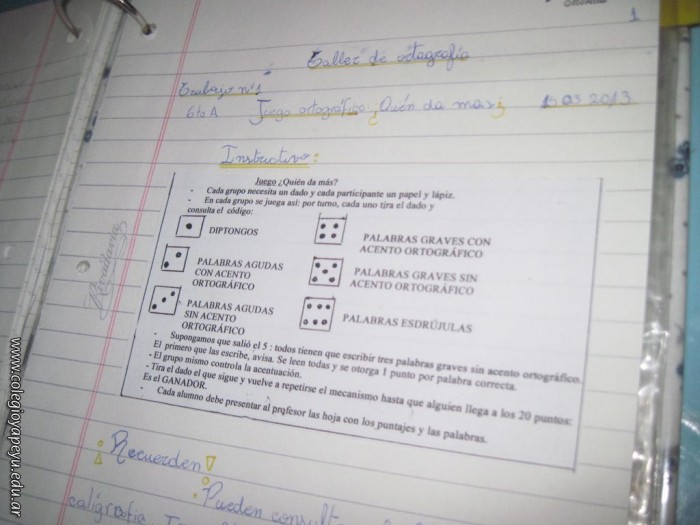 1
Taller de ortografía
Trabajo n°1
6to A Juego ortográfico: ¿Quén da mas? 15 03 2013
Instructivo:
Juego ¿Quién da más?
- Cada grupo necesita un dado y cada participante un papel y lápiz.
- En cada grupo se juega así: por turno, cada uno tira el dado y
consulta el código:
DIPTONGOS
PALABRAS AGUDAS
CON ACENTO
ORTOGRÁFICO
PALABRAS AGUDAS
SIN ACENTO
ORTOGRÁFICO
PALABRAS GRAVES CON
ACENTO ORTOGRÁFICO
PALABRAS GRAVES SIN
ACENTO ORTOGRÁFICO
PALABRAS ESDRÚJULAS
- Supongamos que salió el 5 : todos tienen que escribir tres palabras graves sin acento ortográfico.
El primero que las escribe, avisa. Se leen todas y se otorga 1 punto por palabra correcta.
- El grupo mismo controla la acentuación.
- Tira el dado el que sigue y vuelve a repetirse el mecanismo hasta que alguien llega a los 20 puntos:
Es el GANADOR.
- Cada alumno debe presentar al profesor las hoja con los puntajes y las palabras.
Rivadavia
Recuerden
Pueden consult
caligrafia
www.colegioyapeyu.edu.ar